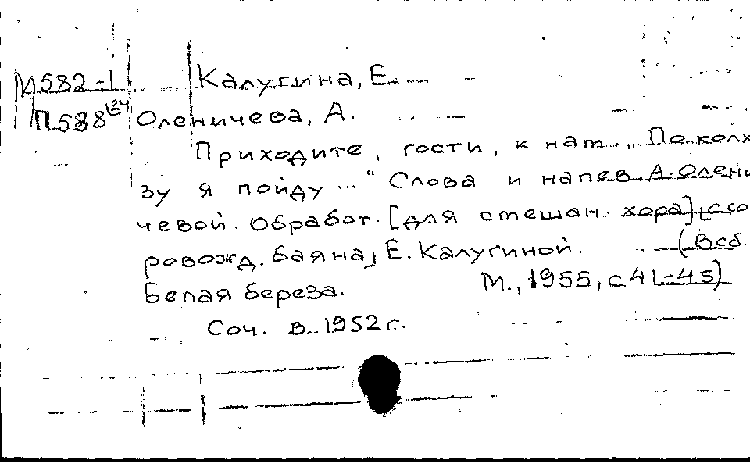 М582-1 Калугина, Е.
П588 Оленичева, А.
Приходите, гости, к нам. „По колхо
зу я пойду..." Слова и напев А. Олени
чевой. Обработ. [для смешан. хора] [с со
ровожд. баяна] Е. Калугиной. (В сб.
Белая береза. М., 1955, с 41-45)
Соч. в 1952 г.